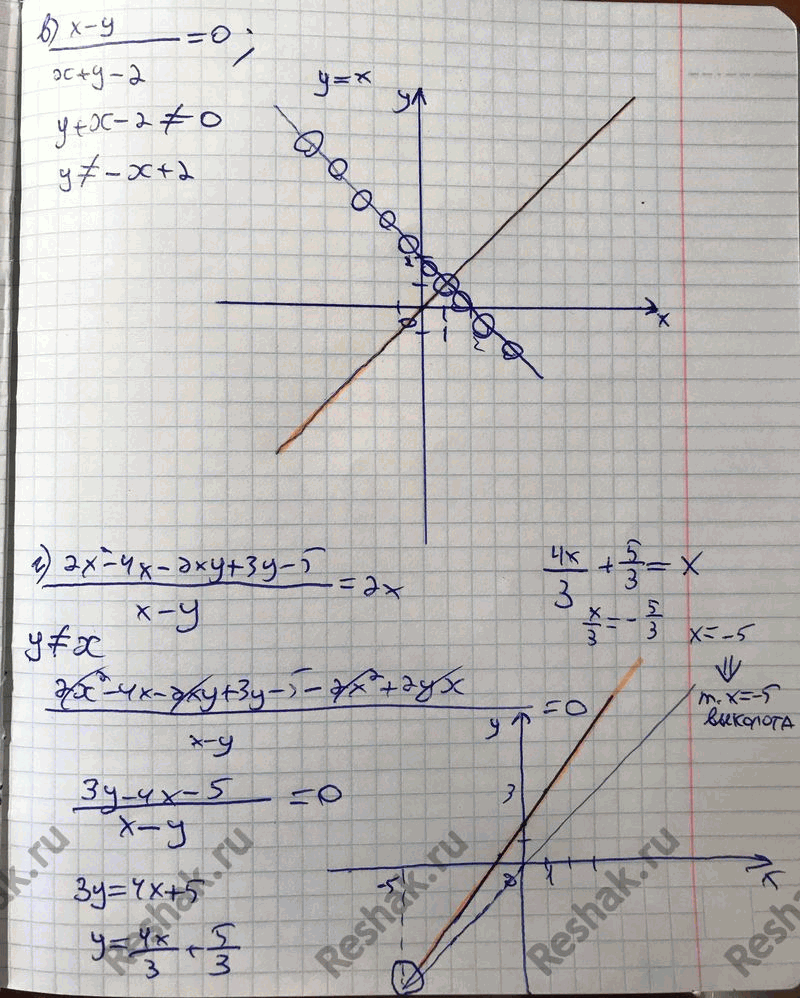 в) (x-y)/(x+y-2) = 0;
y+x-2≠0
y≠-x+2
y=x
y
2
0
1
2
x
г) (2x²-4x-2xy+3y-5)/(x-y) = 2x
y≠x
(2x²-4x-2xy+3y-5-2x²+2yx)/(x-y) = 0
(3y-4x-5)/(x-y) = 0
3y=4x+5
y=4x/3+5/3
4x/3 + 5/3 = x
x/3 = -5/3
x=-5
⇓
т. x=-5
выколота
y
3
-5
0
1
x
Reshak.ru
Reshak.ru
Reshak.ru
Reshak.ru
Reshak.ru